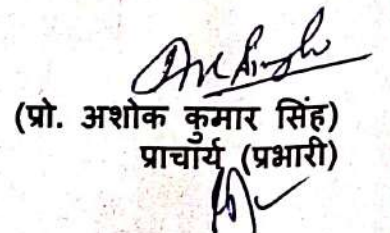 (प्रो. अशोक कुमार सिंह)
प्राचार्य (प्रभारी)